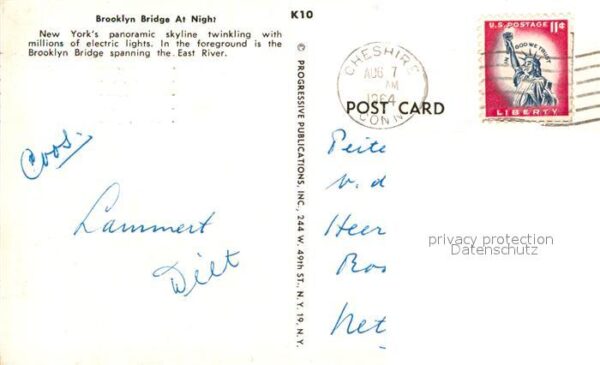 Brooklyn Bridge At Night
New York's panoramic skyline twinkling with
millions of electric lights. In the foreground is the
Brooklyn Bridge spanning the East River.
K10
© PROGRESSIVE PUBLICATIONS, INC., 244 W. 49th ST., N. Y. 19, N. Y.
CHESHIRE
AUG 7
AM
1964
CONN
U.S. POSTAGE 11¢
IN GOD WE TRUST
LIBERTY
POST CARD
Coos.
Lammert
Dilt
Peite
v. d
Heer
Ros
Net
privacy protection
Datenschutz